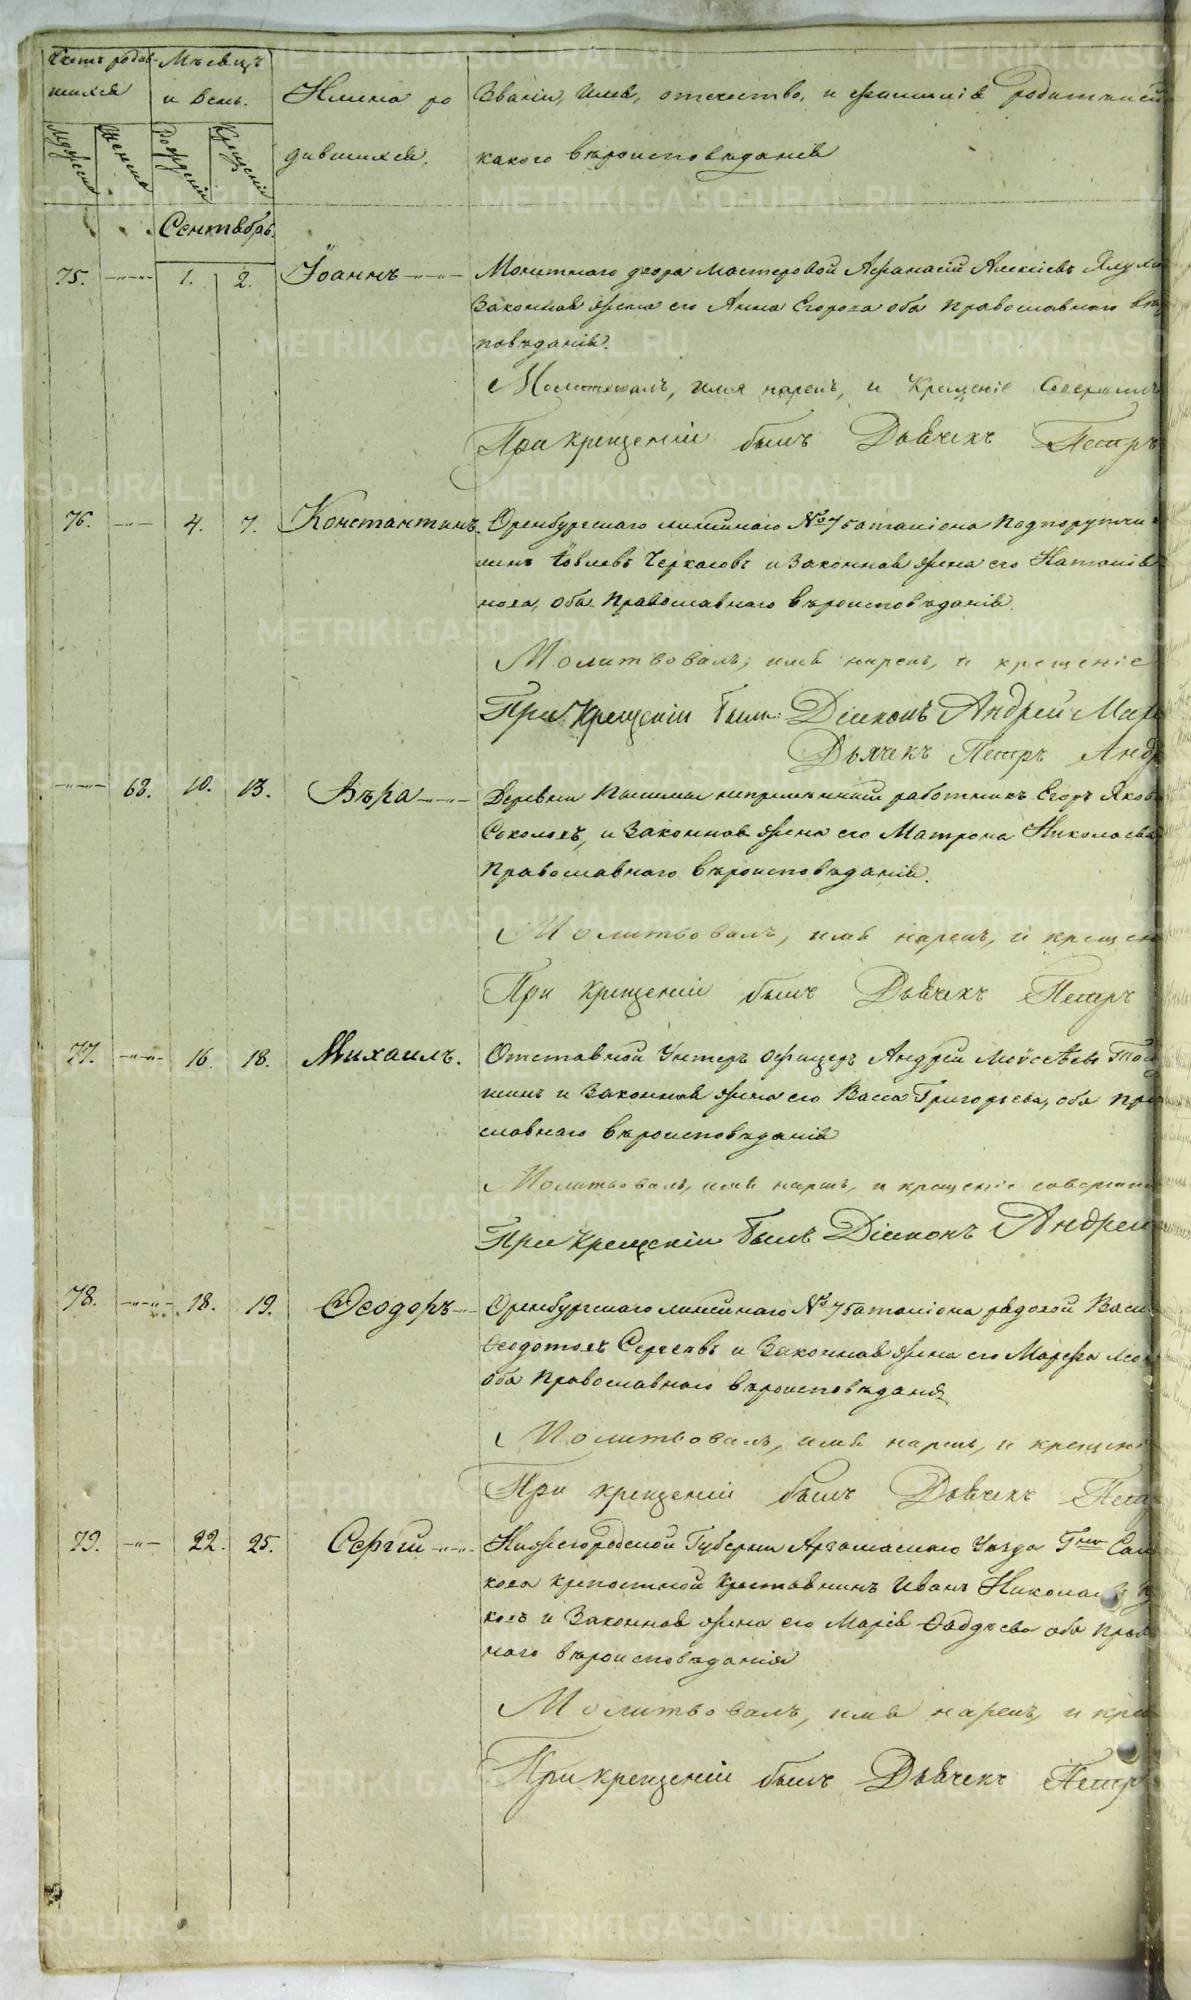 Счетъ родив- Мѣсяцъ
шихся и день. Имена ро Званіе, имя, отчество, и фамилія родителей
дившихся. какого вѣроисповѣданія
Мужеска Женска Рожденія Крещенія
Сентябрь.
75. 1. 2. Іоаннъ Монетнаго двора мастеровой Афанасій Алексѣевъ
Законная жена его Анна Егорова оба Православнаго
повѣданія.
Молитвовалъ, имя нарекъ, и Крещеніе
При крещеніи былъ Дьячекъ Петръ
76. 4. 7. Константинъ. Оренбургскаго линейнаго № 7 баталіона Подпоручи
Іовлевъ Черкасовъ и Законная жена его Наталія
нова, оба Православнаго вѣроисповѣданія.
Молитвовалъ, имя нарекъ, и крещеніе
При крещеніи были: Діаконъ Андрей
Дьячекъ Петръ
68. 10. 13. Вѣра Деревни непремѣнный работникъ Егоръ
Соколовъ, и Законная жена его Матрона Николаева
Православнаго вѣроисповѣданія.
Молитвовалъ, имя нарекъ, и крещен
При крещеніи былъ Дьячекъ Петръ
77. 16. 18. Михаилъ. Отставной Унтеръ офицеръ Андрей Моѵсѣевъ
шинъ и Законная жена его Васса Григорьева, оба Пра
славнаго вѣроисповѣданія
Молитвовалъ, имя нарекъ, и крещеніе
При крещеніи былъ Діаконъ Андрей
78. 18. 19. Ѳеодоръ Оренбургскаго линейнаго № 7 баталіона рядовой Васи
Ѳедотовъ Сергѣевъ и Законная жена его Марфа
оба Православнаго вѣроисповѣданія
Молитвовалъ, имя нарекъ, и крещені
При крещеніи былъ Дьячекъ Петр
79. 22. 25. Сергій Нижегородской Губерніи Арзамаскаго Уѣзда
кова крѣпостной Крестьянинъ Иванъ Николаевъ
ковъ и Законная жена его Марія Фаддѣева оба Прав
наго вѣроисповѣданія
Молитвовалъ, имя нарекъ, и кре
При крещеніи былъ Дьячекъ Петръ